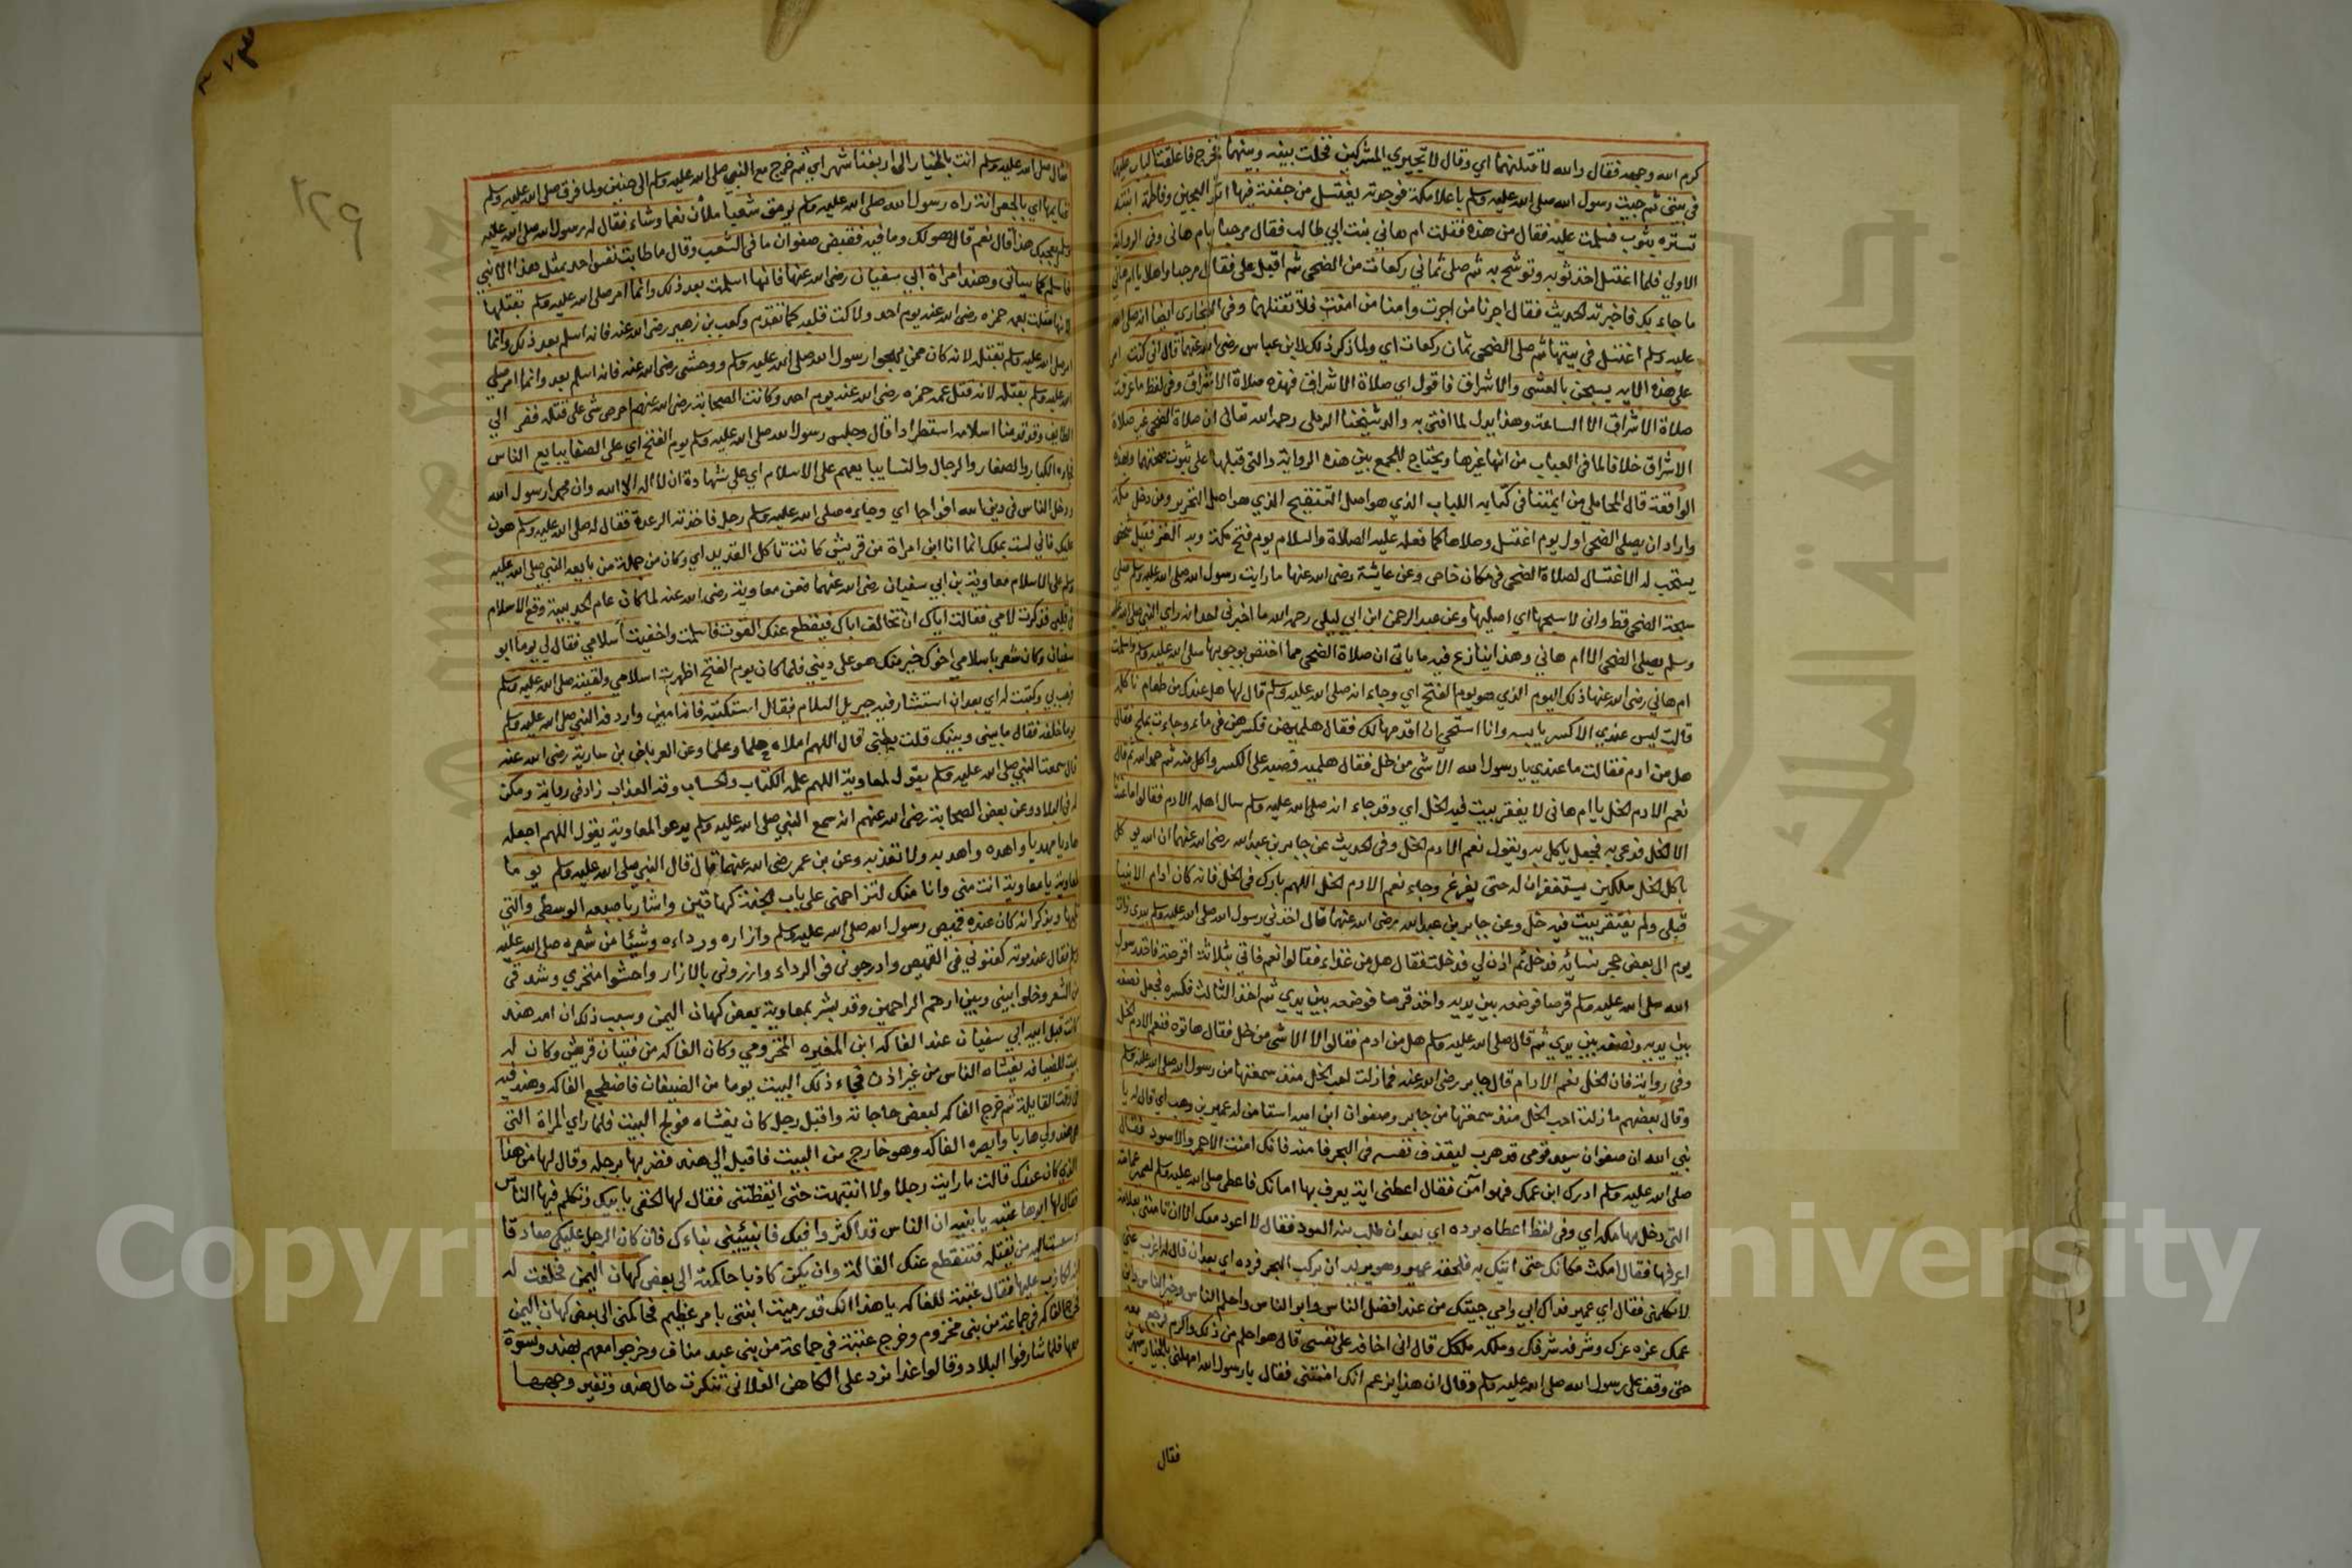 كرم الله وجهه فقال والله لاقتلنهما اي وقال لا تجيري المشركين فحلت بينه وبينهما فخرج فاغلقت الباب عليهما
في بيتي ثم جيت رسول الله صلى الله عليه وسلم باعلا مكة فوجدته يغتسل من جفنة فيها اثر العجين وفاطمة ابنته
تستره بثوب فسلمت عليه فقال من هذه فقلت ام هاني بنت ابي طالب فقال مرحبا بام هاني وفي الرواية
الاولي فلما اغتسل اخذ ثوبه وتوشح به ثم صلى ثماني ركعات من الضحى ثم اقبل علي فقال مرحبا واهلا يا ام هاني
ما جاء بك فاخبرته الحديث فقال اجرنا من اجرت وامنا من امنت فلا تقتلهما وفي البخاري ايضا انه صلى الله
عليه وسلم اغتسل في بيتها ثم صلى الضحى ثمان ركعات اي ولما ذكر ذلك لابن عباس رضي الله عنهما قال اني كنت امر
على هذه الاية يسبحن بالعشي والاشراق فاقول اي صلاة الاشراق فهذه صلاة الاشراق وفي لفظ ما عرفت
صلاة الاشراق الا الساعة وهذا يدل لما افتى به والد شيخنا الرملي رحمه الله تعالى ان صلاة الضحى غير صلاة
الاشراق خلافا لما في العباب من انها غيرها ويحتاج للجمع بين هذه الرواية والتي قبلها على ثبوت صحتهما وهذه
الواقعة قال المحاملي من ايمتنا في كتابه اللباب الذي هو اصل التنقيح الذي هو اصل التحرير ومن دخل مكة
واراد ان يصلي الضحى اول يوم اغتسل وصلاها كما فعله عليه الصلاة والسلام يوم فتح مكة وبه الغز فقيل شخص
يستحب له الاغتسال لصلاة الضحى في مكان خاص وعن عايشة رضي الله عنها ما رايت رسول الله صلى الله عليه وسلم صلى
سبحة الضحى قط واني لاسبحها اي اصليها وعن عبد الرحمن ابن ابي ليلى رحمه الله ما اخبرني احد انه راى النبي صلى الله عليه
وسلم يصلي الضحى الا ام هاني وهذا ينازع فيه ما ياتي ان صلاة الضحى مما اختص بوجوبها صلى الله عليه وسلم واسلمت
ام هاني رضي الله عنها ذلك اليوم الذي هو يوم الفتح اي وجاء انه صلى الله عليه وسلم قال لها هل عندك من طعام ناكله
قالت ليس عندي الا كسر يابسة وانا استحي ان اقدمها لك فقال هلمي بهن فكسرهن في ماء وجاءت بملح فقال
هل من ادم فقالت ما عندي يا رسول الله الا شي من خل فقال هلميه فصبه على الكسر واكل منه ثم حمد الله ثم قال
نعم الادم الخل يا ام هاني لا يفقر بيت فيه الخل اي وقد جاء انه صلى الله عليه وسلم سال اهله الادم فقالوا ما عندنا
الا الخل فدعى به فجعل ياكل به ويقول نعم الادم الخل وفي الحديث عن جابر بن عبد الله رضي الله عنهما ان الله يوكل
باكل الخل ملكين يستغفران له حتى يفرغ وجاء نعم الادم الخل اللهم بارك في الخل فانه كان ادام الانبيا
قبلي ولم يفتقر بيت فيه خل وعن جابر بن عبد الله رضي الله عنهما قال اخذني رسول الله صلى الله عليه وسلم بيدي ذات
يوم الى بعض حجر نسائه فدخل ثم اذن لي فدخلت فقال هل من غداء فقالوا نعم فاتي بثلاثة اقرصة فاخذ رسول
الله صلى الله عليه وسلم قرصا فوضعه بين يديه واخذ قرصا فوضعه بين يدي ثم اخذ الثالث فكسره فجعل نصفه
بين يديه ونصفه بين يدي ثم قال صلى الله عليه وسلم هل من ادم فقالوا لا الا شي من خل فقال هاتوه فنعم الادم الخل
وفي رواية فان الخل نعم الادام قال جابر رضي الله عنه فما زلت احب الخل منذ سمعتها من رسول الله صلى الله عليه وسلم
وقال بعضهم ما زلت احب الخل منذ سمعتها من جابر وصفوان ابن امية استامن له عمير بن وهب اي قال له يا
نبي الله ان صفوان سيد قومي قد هرب ليقذف نفسه في البحر فامنه فانك امنت الاحمر والاسود فقال
صلى الله عليه وسلم ادرك ابن عمك فهو امن فقال اعطني اية يعرف بها امانك فاعطى صلى الله عليه وسلم لعمير عمامته
التي دخل بها مكة اي وفي لفظ اعطاه برده اي بعد ان طلب منه العود فقال لا اعود معك الا ان تاتيني بعلامة
اعرفها فقال امكث مكانك حتى اتيك به فلحقه عمير وهو يريد ان يركب البحر فرده اي بعد ان قال له اغرب عني
لا تكلمني فقال اي عمير فداك ابي وامي جيتك من عند افضل الناس وابر الناس واحلم الناس وخير الناس ابن
عمك عزه عزك وشرفه شرفك وملكه ملكك قال اني اخافه على نفسي قال هو احلم من ذلك واكرم فرجع معه
حتى وقف على رسول الله صلى الله عليه وسلم وقال ان هذا يزعم انك امنتني فقال يا رسول الله امهلني بالخيار شهرين
فقال
٣٧٣
١٢٩
فقال صلى الله عليه وسلم انت بالخيار الى اربعة اشهر اي ثم خرج مع النبي صلى الله عليه وسلم الى حنين ولما فرق صلى الله عليه وسلم
غنايمها اي بالجعرانة راه رسول الله صلى الله عليه وسلم يرمق شعبا ملان نعما وشاء فقال له رسول الله صلى الله عليه
وسلم يعجبك هذا قال نعم قال هو لك وما فيه فقبض صفوان ما في الشعب وقال ما طابت نفس احد بمثل هذا الا نبي
فاسلم كما سياتي وهند امراة ابي سفيان رضي الله عنها فانها اسلمت بعد ذلك وانما امر صلى الله عليه وسلم بقتلها
لانها مثلت بعمه حمزه رضي الله عنه يوم احد ولاكت قلبه كما تقدم وكعب بن زهير رضي الله عنه فانه اسلم بعد ذلك وانما
امر صلى الله عليه وسلم بقتله لانه كان ممن يهجوا رسول الله صلى الله عليه وسلم ووحشي رضي الله عنه فانه اسلم بعد وانما امر صلى
الله عليه وسلم بقتله لانه قتل عمه حمزه رضي الله عنه يوم احد وكانت الصحابة رضي الله عنهم احرص شي على قتله ففر الي
الطايف وقد قدمنا اسلامه استطرادا قال وجلس رسول الله صلى الله عليه وسلم يوم الفتح اي على الصفا يبايع الناس
فجاءه الكبار والصغار والرجال والنسا يبايعهم على الاسلام اي على شهادة ان لا اله الا الله وان محمدا رسول الله
ودخل الناس في دين الله افواجا اي وجاءه صلى الله عليه وسلم رجل فاخذته الرعدة فقال له صلى الله عليه وسلم هون
عليك فاني لست بملك انما انا ابن امراة من قريش كانت تاكل القديد اي وكان من جملة من بايعه النبي صلى الله عليه
وسلم على الاسلام معاوية بن ابي سفيان رضي الله عنهما فعن معاوية رضي الله عنه لما كان عام الحديبية وقع الاسلام
في قلبي فذكرت لامي فقالت اياك ان تخالف اباك فيقطع عنك القوت فاسلمت واخفيت اسلامي فقال لي يوما ابو
سفيان وكان شعر باسلامي اخوك خير منك هو على ديني فلما كان يوم الفتح اظهرت اسلامي ولقيته صلى الله عليه وسلم
فرحب بي وكتبت له اي بعد ان استشار فيه جبريل السلام فقال استكتبه فانه امين واردفه النبي صلى الله عليه وسلم
يوما خلفه فقال ما يليني وبينك قلت بطني قال اللهم املاه حلما وعلما وعن العرباض بن سارية رضي الله عنه
قال سمعت النبي صلى الله عليه وسلم يقول لمعاوية اللهم علمه الكتاب والحساب وقه العذاب زاد في رواية ومكن
له في البلاد وعن بعض الصحابة رضي الله عنهم انه سمع النبي صلى الله عليه وسلم يدعو لمعاوية يقول اللهم اجعله
هاديا مهديا واهده واهد به ولا تعذبه وعن بن عمر رضي الله عنهما قال قال النبي صلى الله عليه وسلم يوما
لمعاوية يا معاوية انت مني وانا منك لتزاحمني على باب الجنة كهاتين واشار باصبعه الوسطى والتي
تليها ويذكر انه كان عنده قميص رسول الله صلى الله عليه وسلم وازاره ورداءه وشيئا من شعره صلى الله عليه
وسلم فقال عند موته كفنوني في القميص وادرجوني في الرداء وازروني بالازار واحشوا منخري وشدقي
من الشعر وخلوا بيني وبين ارحم الراحمين وقد بشر بمعاوية بعض كهان اليمن وسبب ذلك ان امه هند
كانت قبل ابيه ابي سفيان عند الفاكه ابن المغيره المخزومي وكان الفاكه من فتيان قريش وكان له
بيت للضيافه يغشاه الناس من غير اذن فجاء ذلك البيت يوما من الضيفان فاضطجع الفاكه وهند فيه
في وقت القايلة ثم خرج الفاكه لبعض حاجاته واقبل رجل كان يغشاه فولج البيت فلما راي المراة التي
هي هند ولى هاربا وابصره الفاكه وهو خارج من البيت فاقبل الي هند فضربها برجله وقال لها من هذا
الذي كان عندك قالت ما رايت رجلا ولا انتبهت حتى ايقظتني فقال لها الحقي بابيك وتكلم فيها الناس
فقال لها ابوها عتبه يا بنيه ان الناس قد اكثروا فيك فانبئيني نباءك فان كان الرجل عليك صادقا
دسست اليه من يقتله فتنقطع عنك القالة وان يكن كاذبا حاكمته الى بعض كهان اليمن فحلفت له
انه لكاذب عليها فقال عتبة للفاكه يا هذا انك قد رميت ابنتي بامر عظيم فحاكمني الى بعض كهان اليمن
فخرج الفاكه في جماعة من بني مخزوم وخرج عتبة في جماعة من بني عبد مناف وخرجوا معهم بهند ونسوة
معها فلما شارفوا البلاد وقالوا غدا نرد على الكاهن الفلاني تنكرت حال هند وتغير وجهها